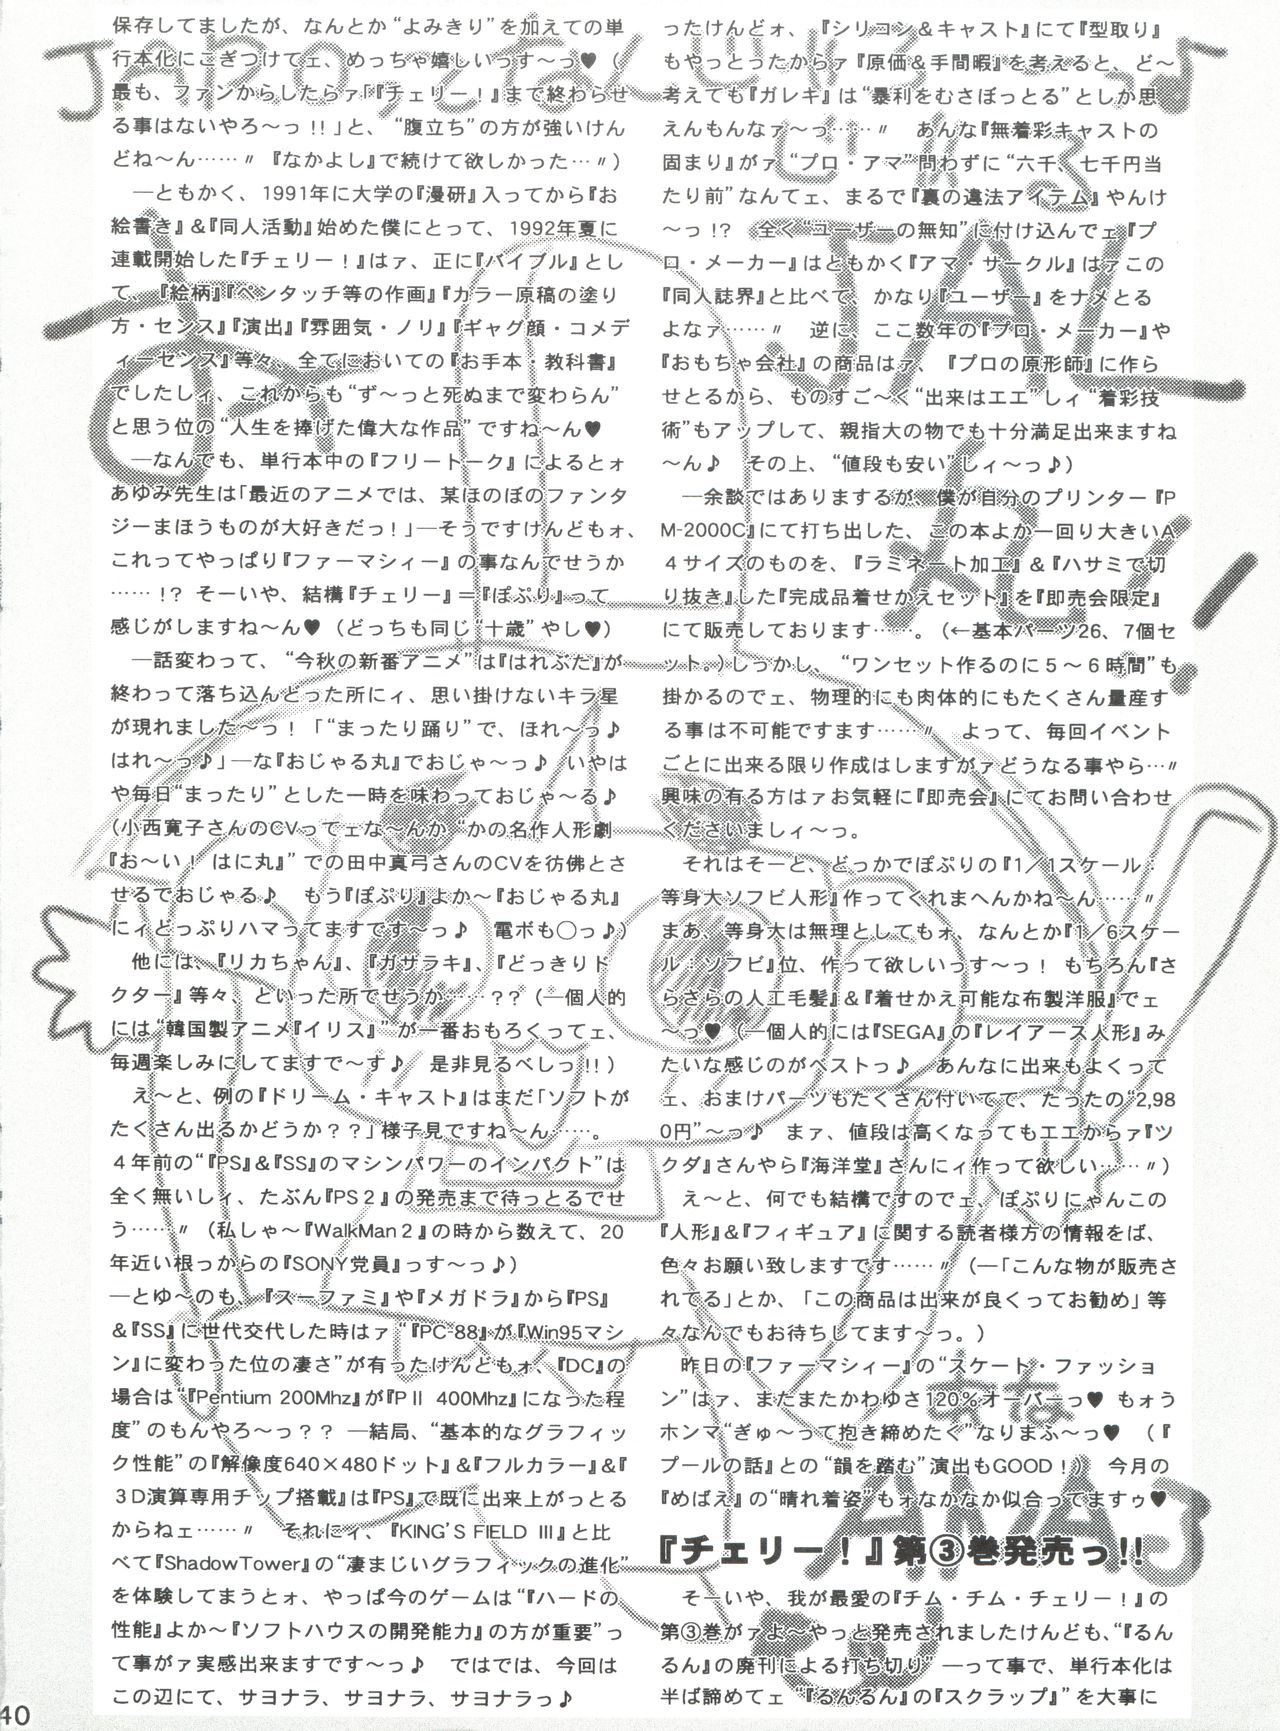 ったけんどォ、『シリコン＆キャスト』にて『型取り』
もやっとったからァ『原価＆手間暇』を考えると、ど〜
考えても『ガレキ』は“暴利をむさぼっとる”としか思
えんもんなァ〜っ……〃　あんな『無着彩キャストの
固まり』がァ“プロ・アマ”問わずに“六千、七千円当
たり前”なんてェ、まるで『裏の違法アイテム』やんけ
〜っ!?　全く“ユーザーの無知”に付け込んでェ『プ
ロ・メーカー』はともかく『アマ・サークル』はァこの
『同人誌界』と比べて、かなり『ユーザー』をナメとる
よなァ……〃　逆に、ここ数年の『プロ・メーカー』や
『おもちゃ会社』の商品はァ、『プロの原形師』に作ら
せとるから、ものすご〜く“出来はエエ”しィ“着彩技
術”もアップして、親指大の物でも十分満足出来ますね
〜ん♪　その上、“値段も安い”しィ〜っ♪）
　―余談ではありまするが、僕が自分のプリンター『P
M-2000C』にて打ち出した、この本よか一回り大きいA
４サイズのものを、『ラミネート加工』＆『ハサミで切
り抜き』した『完成品着せかえセット』を『即売会限定』
にて販売しております……。（←基本パーツ26、7個セ
ット。）しっかし、“ワンセット作るのに５〜６時間”も
掛かるのでェ、物理的にも肉体的にもたくさん量産す
る事は不可能ですます……〃　よって、毎回イベント
ごとに出来る限り作成はしますがァどうなる事やら…〃
興味の有る方はァお気軽に『即売会』にてお問い合わせ
くださいましィ〜っ。
　それはそーと、どっかでぽぷりの『1／1スケール：
等身大ソフビ人形』作ってくれまへんかね〜ん……〃
まあ、等身大は無理としてもォ、なんとか『1／6スケー
ル：ソフビ』位、作って欲しいっす〜っ！ もちろん『さ
らさらの人工毛髪』＆『着せかえ可能な布製洋服』でェ
〜っ♥（―個人的には『SEGA』の『レイアース人形』み
たいな感じのがベストっ♪　あんなに出来もよくって
ェ、おまけパーツもたくさん付いてて、たったの“2,98
0円”〜っ♪　まァ、値段は高くなってもエエからァ『ツ
クダ』さんやら『海洋堂』さんにィ作って欲しい……〃）
　え〜と、何でも結構ですのでェ、ぽぷりにゃんこの
『人形』＆『フィギュア』に関する読者様方の情報をば、
色々お願い致しますです……〃（―「こんな物が販売さ
れてる」とか、「この商品は出来が良くってお勧め」等
々なんでもお待ちしてます〜っ。）
　昨日の『ファーマシィー』の“スケート・ファッショ
ン”はァ、またまたかわゆさ120％オーバーっ♥ もォう
ホンマ“ぎゅ〜って抱き締めたく”なりまふ〜っ♥　（『
プールの話』との“韻を踏む”演出もGOOD！）　今月の
『めばえ』の“晴れ着姿”もォなかなか似合ってますゥ♥
『チェリー！』第③巻発売っ!!
　そーいや、我が最愛の『チム・チム・チェリー！』の
第③巻がァよ〜やっと発売されましたけんども、“『るん
るん』の廃刊による打ち切り”―って事で、単行本化は
半ば諦めてェ“『るんるん』の『スクラップ』”を大事に
保存してましたが、なんとか“よみきり”を加えての単
行本化にこぎつけてェ、めっちゃ嬉しいっす〜っ♥（
最も、ファンからしたらァ「『チェリー！』まで終わらせ
る事はないやろ〜っ!!」と、“腹立ち”の方が強いけん
どね〜ん……〃『なかよし』で続けて欲しかった…〃）
　―ともかく、1991年に大学の『漫研』入ってから『お
絵書き』＆『同人活動』始めた僕にとって、1992年夏に
連載開始した『チェリー！』はァ、正に『バイブル』とし
て、『絵柄』『ペンタッチ等の作画』『カラー原稿の塗り
方・センス』『演出』『雰囲気・ノリ』『ギャグ顔・コメデ
ィーセンス』等々、全てにおいての『お手本・教科書』
でしたしィ、これからも“ず〜っと死ぬまで変わらん”
と思う位の“人生を捧げた偉大な作品”ですね〜ん♥
　―なんでも、単行本中の『フリートーク』によるとォ
あゆみ先生は「最近のアニメでは、某ほのぼのファンタ
ジーまほうものが大好きだっ！」―そうですけんどもォ、
これってやっぱり『ファーマシィー』の事なんでせうか
……!? そーいや、結構『チェリー』＝『ぽぷり』って
感じがしますね〜ん♥（どっちも同じ“十歳”やし♥）
　―話変わって、“今秋の新番アニメ”は『はれぶた』が
終わって落ち込んどった所にィ、思い掛けないキラ星
が現れました〜っ！「“まったり踊り”で、ほれ〜っ♪
はれ〜っ♪」―な『おじゃる丸』でおじゃ〜っ♪ いやは
や毎日“まったり”とした一時を味わっておじゃ〜る♪
（小西寛子さんのCVってェな〜んか“かの名作人形劇
『お〜い！ はに丸』”での田中真弓さんのCVを彷彿とさ
せるでおじゃる♪　もう『ぽぷり』よか〜『おじゃる丸』
にィどっぷりハマってますです〜っ♪　電ボも○っ♪）
　他には、『リカちゃん』、『ガサラキ』、『どっきりド
クター』等々、といった所でせうか……？？（―個人的
には“韓国製アニメ『イリス』”が一番おもろくってェ、
毎週楽しみにしてますで〜す♪　是非見るべしっ!!）
　え〜と、例の『ドリーム・キャスト』はまだ「ソフトが
たくさん出るかどうか？？」様子見ですね〜ん……。
４年前の“『PS』＆『SS』のマシンパワーのインパクト”は
全く無いしィ、たぶん『PS２』の発売まで待っとるでせ
う……〃（私しゃ〜『WalkMan２』の時から数えて、20
年近い根っからの『SONY党員』っす〜っ♪）
―とゆ〜のも、『スーファミ』や『メガドラ』から『PS』
＆『SS』に世代交代した時はァ“『PC-88』が『Win95マシ
ン』に変わった位の凄さ”が有ったけんどもォ、『DC』の
場合は“『Pentium 200Mhz』が『PⅡ 400Mhz』になった程
度”のもんやろ〜っ？？ ―結局、“基本的なグラフィッ
ク性能”の『解像度640×480ドット』＆『フルカラー』＆『
３D演算専用チップ搭載』は『PS』で既に出来上がっとる
からねェ……〃　それにィ、『KING'S FIELD Ⅲ』と比
べて『ShadowTower』の“凄まじいグラフィックの進化”
を体験してまうとォ、やっぱ今のゲームは“『ハードの
性能』よか〜『ソフトハウスの開発能力』の方が重要”っ
て事がァ実感出来ますです〜っ♪　ではでは、今回は
この辺にて、サヨナラ、サヨナラ、サヨナラっ♪
40